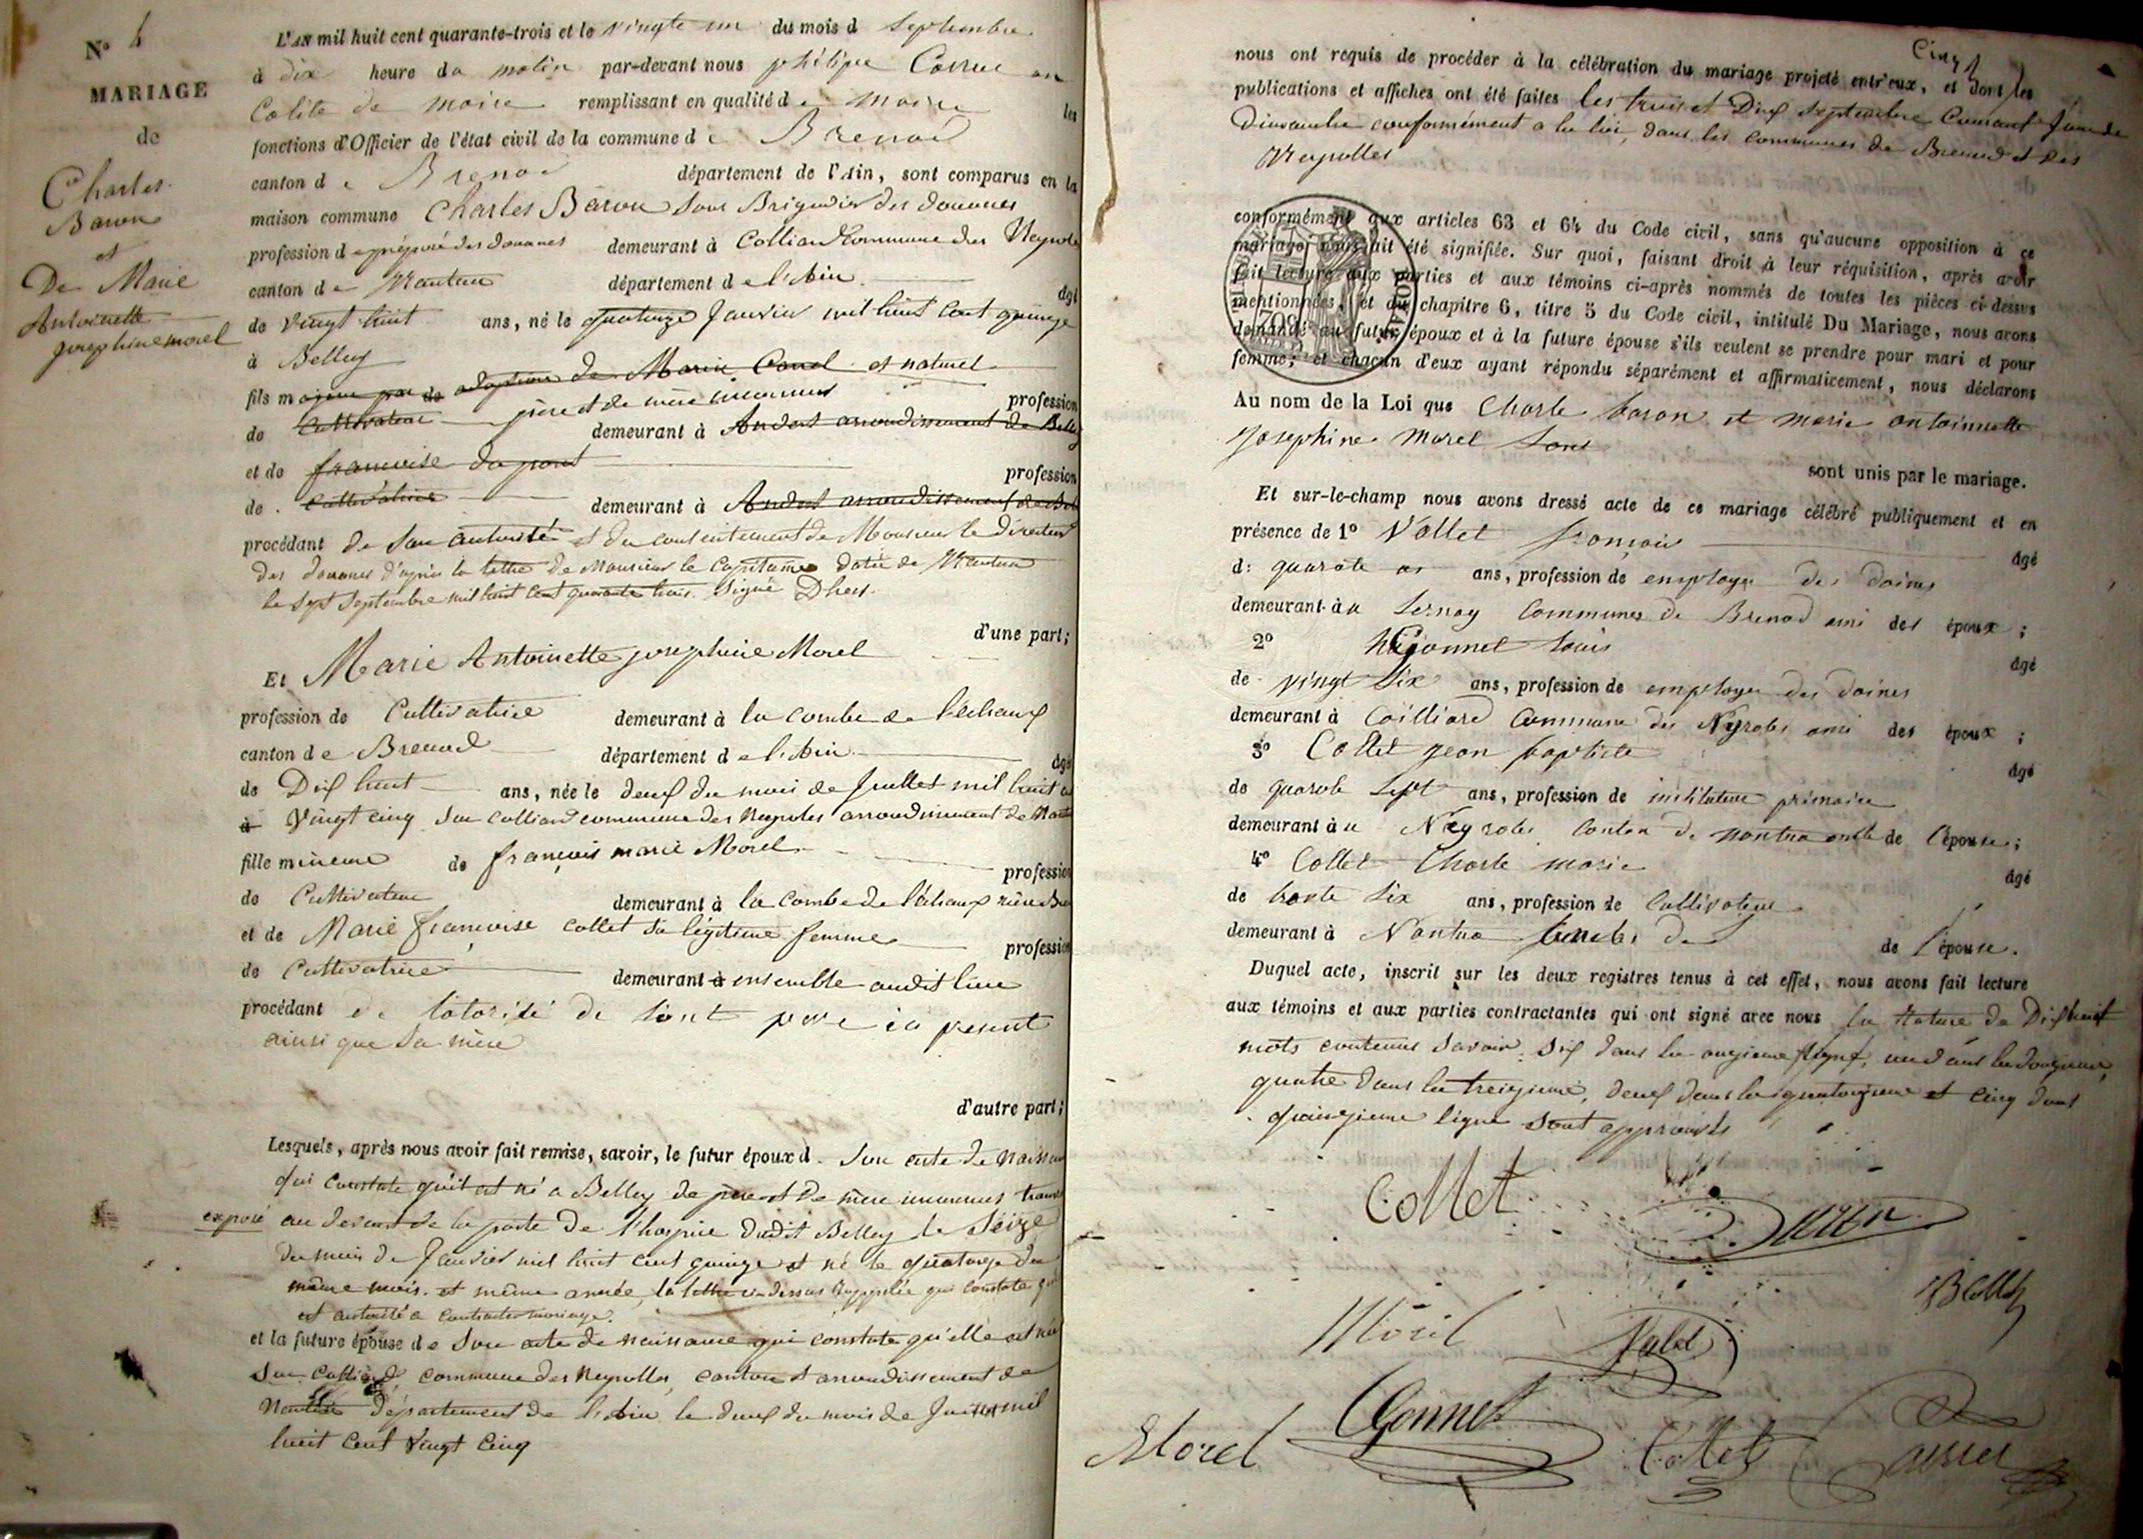 N° 4
MARIAGE
de
Charles
Baron
et
De Marie
Antoinette
josephine morel
L'AN mil huit cent quarante-trois et le vingte un du mois d septembre
à dix heure du matin par-devant nous philipe Carrier en
Calite de maire remplissant en qualité de maire les
fonctions d'Officier de l'état civil de la commune de Brenod
canton de Brenod département de l'Ain, sont comparus en la
maison commune Charles Baron Sous Brigadier des douanes
profession de préposé des douanes demeurant à Colliard Commune des Neyrole
canton de Nantua département de l'Ain âgé
de vingt huit ans, né le quatorze Janvier mil huit cent quinze
à Belley
fils majeur par adoption de Marin et naturel
père et de mère inconnus profession
de Cultivateur demeurant à Andert arrondissement de Belley
et de francoise dupont profession
de cultivatrice demeurant à Andert arrondissement de Bel
procédant de son autorité et du consentement de Monsieur le Directeur
des douanes d'après la lettre de Monsieur le Capitaine datée de Nantua
le Sept Septembre mil huit cent quarante trois. Signé Dhers.
d'une part;
Et Marie Antoinette josephine Morel
profession de Cultivatrice demeurant à la combe de léchaux
canton de Brenod département de l'Ain âgé
de Dix huit ans, née le deux du mois de Juillet mil huit ce
à Vingt cinq Sur colliard commune des Neyroles arrondissement de Nant
fille mineure de françois marie Morel
profession
de Cultivateur demeurant à la Combe de léchaux
et de Marie francoise collet sa légitime femme profession
de Cultivatrice demeurant à ensemble audit lieu
procédant de latorité de sont pere ici present
ainsi que sa mère
d'autre part;
Lesquels, après nous avoir fait remise, savoir, le futur époux d. Son acte de naissan
qui constate qu'il est né a Belley de père et de mère inconnus
exposé au devant de la porte de l'hospice dudit Belley le Seize
du mois de Janvier mil huit cent quinze et né le quatorze du
même mois et même année, la lettre ci-dessus rappelée qui constate qu
est autorisé a contracter mariage.
et la future épouse de Son acte de naissance qui constate qu'elle est née
Sur Colliard commune des Neyrolles, canton et arrondissement de
Nantua département de l'Ain le deux du mois de Juillet mil
huit cent vingt cinq
Cinq
nous ont requis de procéder à la célébration du mariage projeté entr'eux, et dont les
publications et affiches ont été faites les trois et Dix Septembre Courant Jour de
Dimanche conformément a la loi, dans les communes de Brenod et des
Neyrolles
conformément aux articles 63 et 64 du Code civil, sans qu'aucune opposition à ce
mariage nous ait été signifiée. Sur quoi, faisant droit à leur réquisition, après avoir
fait lecture aux parties et aux témoins ci-après nommés de toutes les pièces ci-dessus
mentionnées, et du chapitre 6, titre 5 du Code civil, intitulé Du Mariage, nous avons
demandé au futur époux et à la future épouse s'ils veulent se prendre pour mari et pour
femme; et chacun d'eux ayant répondu séparément et affirmativement, nous déclarons
Au nom de la Loi que Charle baron et marie antoinnette
Josephine Morel Sont
sont unis par le mariage.
Et sur-le-champ nous avons dressé acte de ce mariage célébré publiquement et en
présence de 1° Vallet françois âgé
de quarate ans, profession de employer des doines
demeurant à u Sernoy Communes de Brenod ami des époux;
2° Gonnet louis âgé
de vingt Six ans, profession de employer des doines
demeurant à Coilliard Commune des Neyroles ami des époux;
3° Collet jean baptiste âgé
de quarate Sept ans, profession de instituteur primaire
demeurant à u Neyroles Conton de nantua oncle de l'épouse;
4° Collet Charle marie âgé
de trente Six ans, profession de Cultivateur
demeurant à Nantua de l'épouse.
Duquel acte, inscrit sur les deux registres tenus à cet effet, nous avons fait lecture
aux témoins et aux parties contractantes qui ont signé avec nous la Rature de Dix huit
mots contenus savoir Six dans la onzieme ligne, un dans la douzieme,
quatre dans la treizieme, deux dans la quatorzieme et cinq dans
quinzieme ligne sont approuvés
Collet
Baron
Morel
Valet
Morel
Gonnet
Collet
Carrier